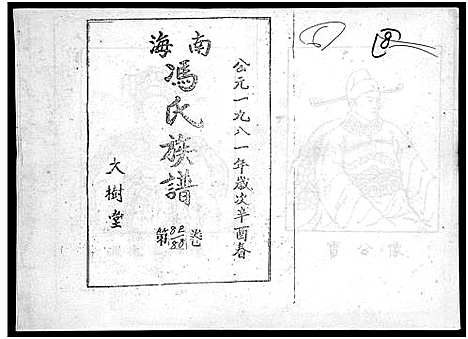 南海
馮氏族譜
公元一九八一年歲次辛酉春
大樹堂
第85/88卷
8
像公寶